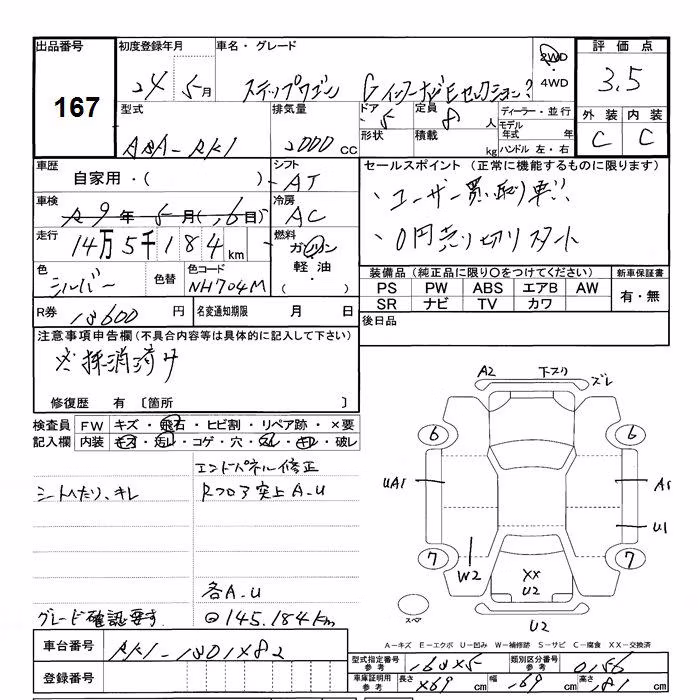 出品番号 初度登録年月 車名・グレード 2WD ・ 4WD 評価点
167
24年 5月 ステップワゴン Gインターナビセレクション? 3.5
型式 排気量 ドア 5 定員 8人 ディーラー・並行 外装 内装
形状 積載 kg モデル年式 年 ハンドル 左・右
DBA-RK1 2000cc C C
車歴 シフト セールスポイント (正常に機能するものに限ります)
自家用・( ) AT
車検 冷房 、ユーザー買取り車!!
R9年5月( 、6日) AC
走行 燃料 、0円売り切りスタート
14万5千184km ガソリン
軽油
色 色替 色コード ・( )
シルバー NH704M
装備品 (純正品に限り○をつけてください) 新車保証書
PS PW ABS エアB AW 有・無
SR ナビ TV カワ
R券 18600円 名変通知期限 月 日 後日品
注意事項申告欄 (不具合内容等は具体的に記入して下さい)
※抹消済み
修復歴 有 〔箇所 〕
検査員 FW キズ ・ 飛石 ・ ヒビ割 ・ リペア跡 ・ ×要
記入欄 内装 キズ・汚レ・コゲ・穴・スレ・キレ・破レ
エンドパネル修正
シートヘたり、キレ Rフロア突上A.U
各A.U
グレード確認要す ◎145.184km
A2 下スリ ズレ
6 6
UA1 A1
U1
7 7
W2 XX
U2
スペア U2
A-キズ E-エクボ U-凹み W-補修跡 S-サビ C-腐食 XX-交換済
車台番号 RK1-1301×82
登録番号
型式指定番号 参考 16××5 類別区分番号 参考 0156
車庫証明用 参考 長さ ×69cm 幅 ・69cm 高さ ・81cm